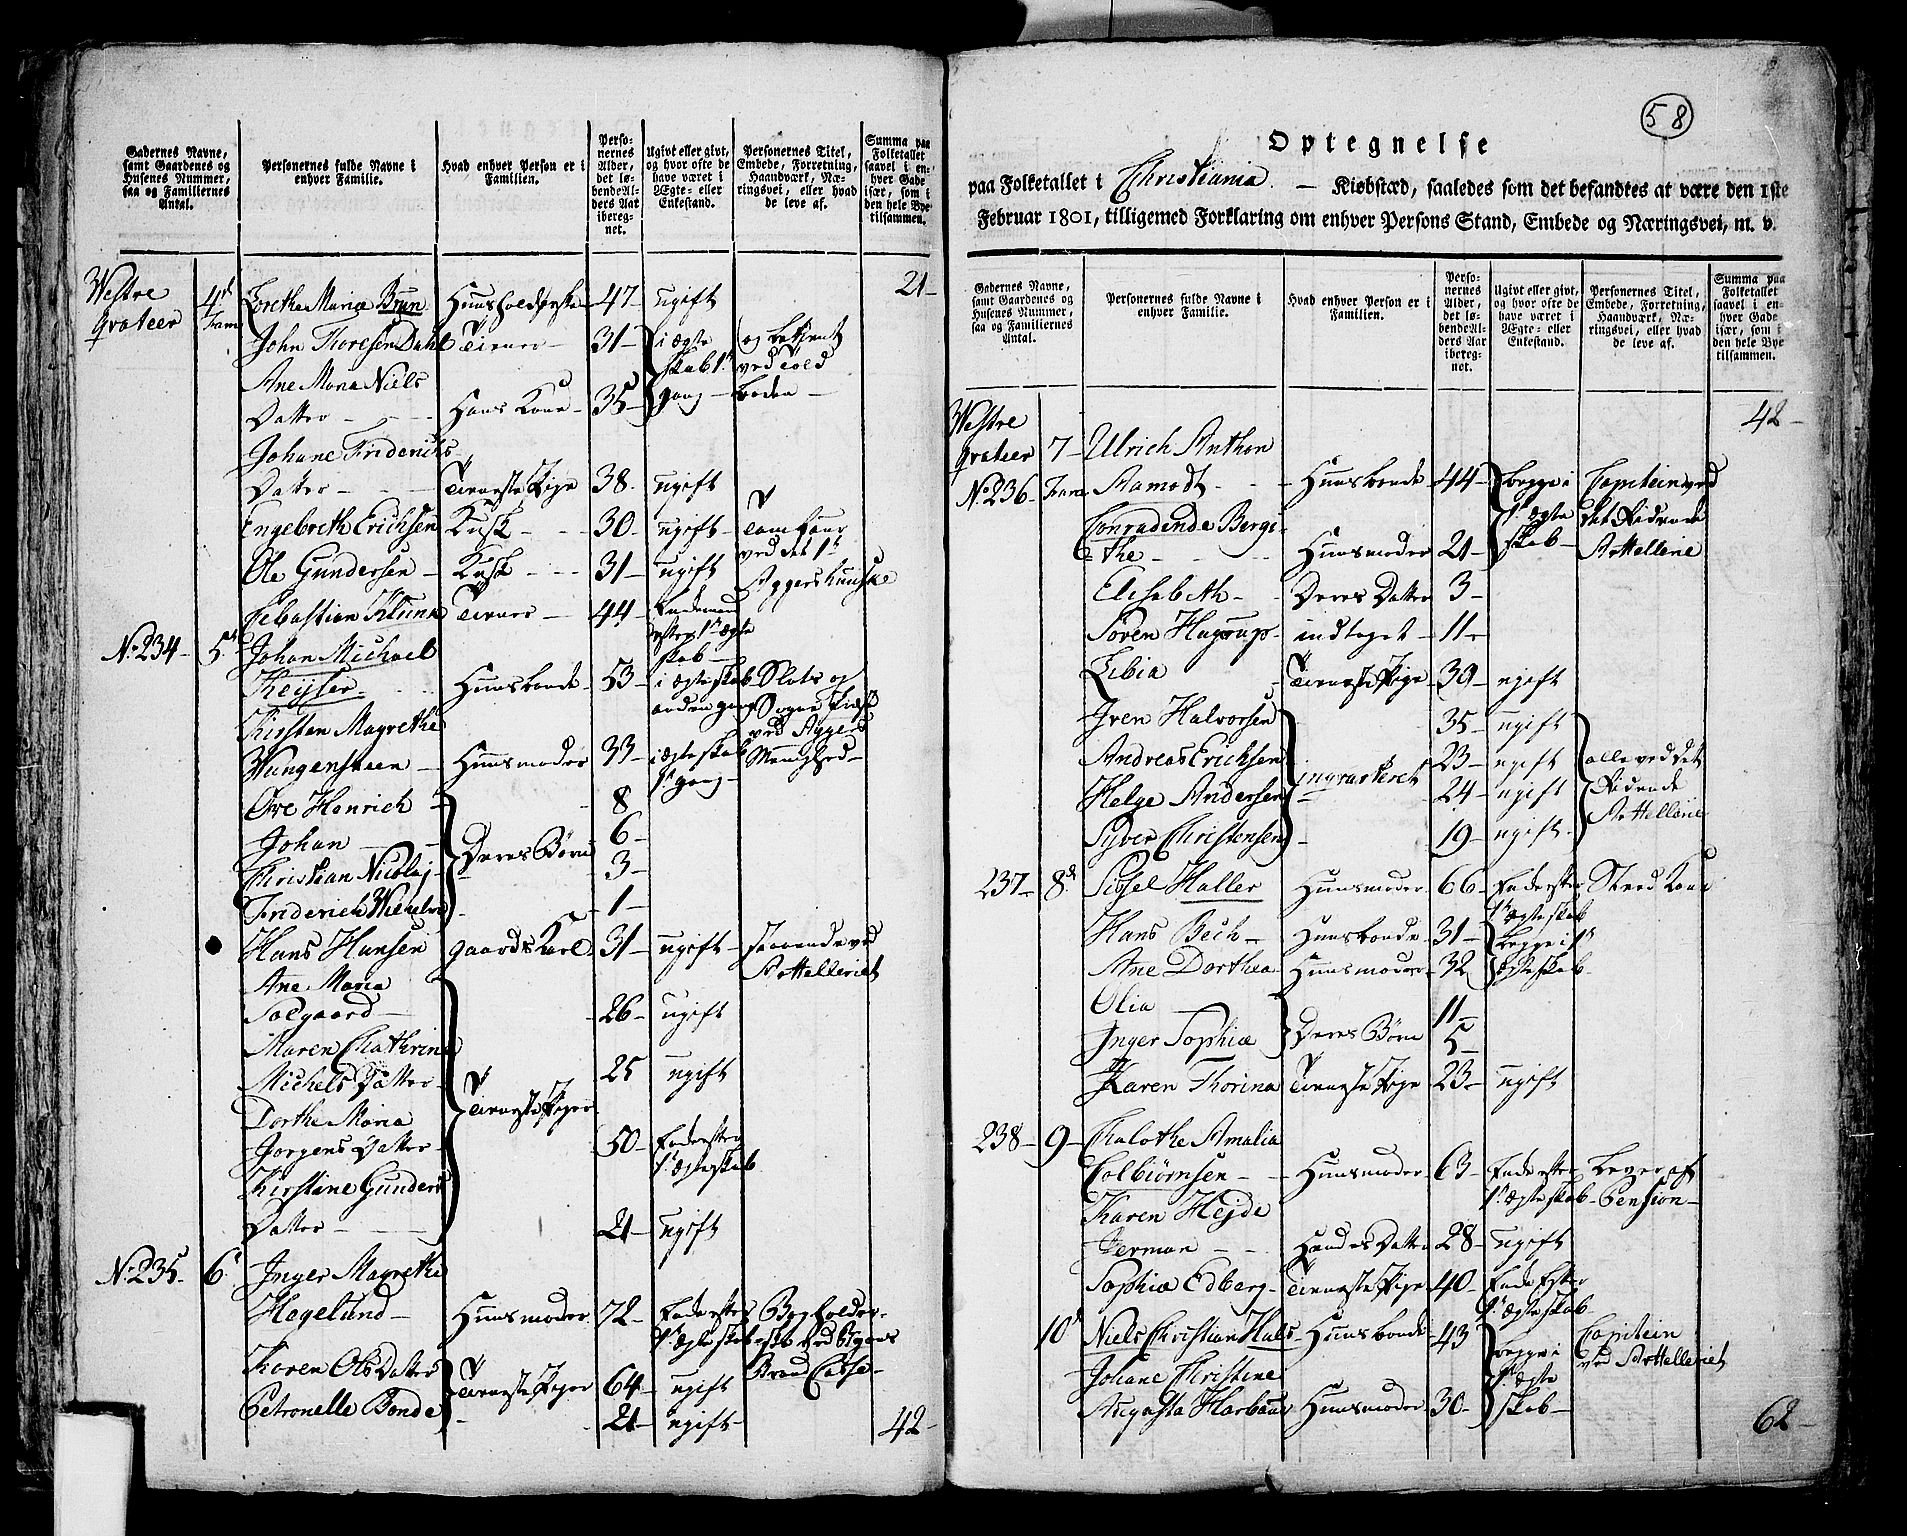 Gadernes Navne, samt Gaardenes og Husenes Nummer, saa og Familiernes Antal.
Personernes fulde Navne i enhver Familie.
Hvad enhver Person er i Familien.
Personernes Alder, det løbende Alders Aar iberegnet.
Ugivt eller givt, og hvor ofte de have været i Ægte- eller Enkestand.
Personernes Titel, Embede, Forretning, Haandværk, Næringsvei, eller hvad de leve af.
Summa paa Folketallet saavel i enhver Gade især, som i den hele Bye tilsammen.
21
Westre Grateer 4d Fam: Lorethe Maria Brun Huusholderske 47 ugift
John Thoresen Dahl Tiener 31 i ægte og betient
skab 1te ved told
Ane Maria Niels
Datter Hans Kone 35 gang boden
Johane Friderichs
Datter Tieneste Pige 38 ugift
Engebreth Erichsen Kusk 30 ugift
ved det 1te
Ole Gundersen Kusk 31 ugift Aggershuuske
Sebastian Tiener 44 Enkemand
efter 1te ægte
skab
No. 234 5te Johan Michael
Keyser Huusbonde 53 i ægteskab Slots og
anden gang Sogne Præst
Kirsten Magrethe ved Aggers
Wungensteen Huusmoder 33 i ægteskab Menighed
1te gang
Ove Henrich 8
Johan 6
Deres Børn
Christian Nicolaj 3
Friderich Wilhelm 1
Hans Hansen gaards Karl 31 ugift ved
Artilleriet
Ane Maria
Solgaard 26 ugift
Maren Chathrine
Michels Datter 25 ugift
Tieneste Piger
Dorthe Maria
Jorgens Datter 50 Enke efter
1te ægteskab
Kirstine Gunders
Datter 21 ugift
No. 235 6te Inger Magrethe
Hagelund Huusmoder 72 Enke efter Bogholder
1te ægteskab
Karen Ols Datter 64 ugift
Tieneste Piger
Petronelle Bonde 21 ugift
42
58
Optegnelse
paa Folketallet i Christiania. — Kiøbstæd, saaledes som det befandtes at være den 1ste
Februar 1801, tilligemed Forklaring om enhver Persons Stand, Embede og Næringsvei, m. v.
Gadernes Navne, samt Gaardenes og Husenes Nummer, saa og Familiernes Antal.
Personernes fulde Navne i enhver Familie.
Hvad enhver Person er i Familien.
Personernes Alder, det løbende Alders Aar iberegnet.
Ugivt eller givt, og hvor ofte de have været i Ægte- eller Enkestand.
Personernes Titel, Embede, Forretning, Haandværk, Næringsvei, eller hvad de leve af.
Summa paa Folketallet saavel i enhver Gade især, som i den hele Bye tilsammen.
42
Westre
Grateer 7 Ulrich Anthon
No. 236 Fam: Aamodt Huusbonde 44 begge i Capitein ved
1te ægte det Ridende
skab Artellerie
Conradende Bergi
the Huusmoder 21
Elisabeth Deres Datter 3
Soren Hagerup indtaget 11
Libia Tieneste Pige 39 ugift
Iven Halvorsen 35 ugift
Andreas Erichsen 23 ugift alle ved det
inqvarteret Ridende
Helge Andersen 24 ugift Artellerie
Syver Christensen 19 ugift
237 8de Sissel Haller Huusmoder 66 Enke efter Kone
1te ægteskab
Hans Bech Huusbonde 31 begge i 1te
Ane Dorthea Huusmoder 32 ægteskab
Olia 11
Deres Børn
Inger Sophia 5
Karen Thorina Tieneste Pige 23 ugift
238 9 Chalothe Amalia
Colbiørnsen Huusmoder 63 Enke efter Lever af
1te ægteskab Pension
Karen Hejde
Verman Hendes Datter 28 ugift
Sophia Edberg Tieneste Pige 40 Enke Efter
1te ægteskab
10de Niels Christian Hals Huusbonde 43 begge i Capitein
ved Artelleriet
Johane Christine 1te ægte
Augusta Harboue Huusmoder 30 skab
62